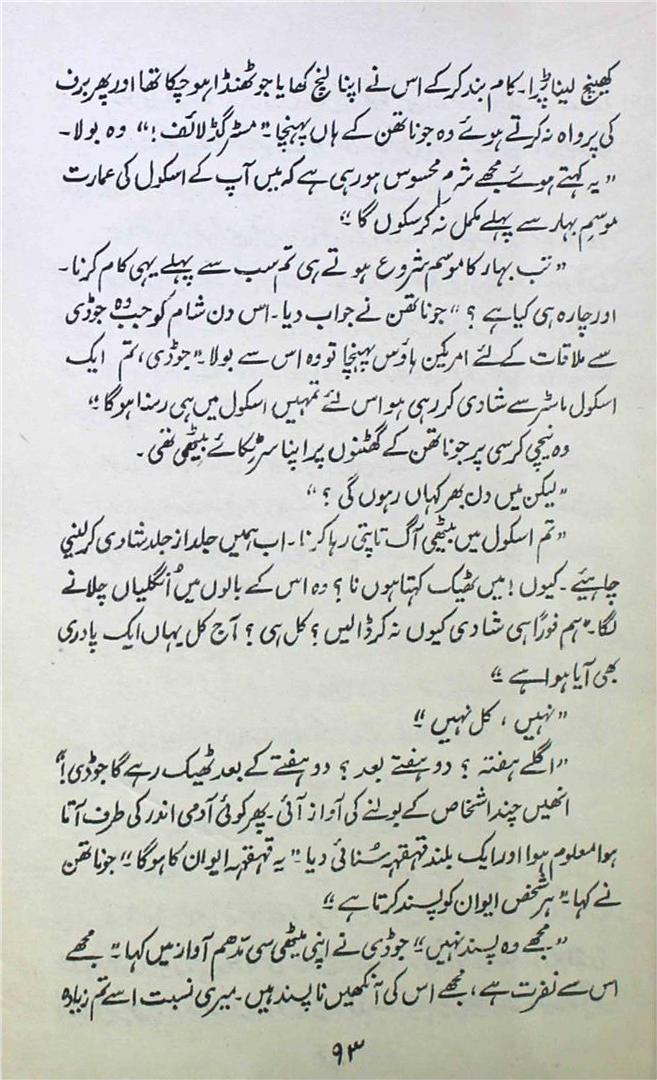 کھینچ لینا پڑا۔ کام بند کر کے اس نے اپنا لنچ کھایا جو ٹھنڈا ہو چکا تھا اور پھر برف
کی پرواہ نہ کرتے ہوئے وہ جوناتھن کے ہاں پہنچا ”مسٹر گڈ لائف!“ وہ بولا۔
”یہ کہتے ہوئے مجھے شرم محسوس ہو رہی ہے کہ میں آپ کے اسکول کی عمارت
موسمِ بہار سے پہلے مکمل نہ کر سکوں گا“
”تب بہار کا موسم شروع ہوتے ہی تم سب سے پہلے یہی کام کرنا۔
اور چارہ ہی کیا ہے؟“ جوناتھن نے جواب دیا۔ اس دن شام کو جب وہ جوڈی
سے ملاقات کے لئے امریکن ہاؤس پہنچا تو وہ اس سے بولا۔ ”جوڈی، تم ایک
اسکول ماسٹر سے شادی کر رہی ہو اس لئے تمہیں اسکول میں ہی رہنا ہوگا“
وہ نیچی کرسی پر جوناتھن کے گھٹنوں پر اپنا سر ٹکائے بیٹھی تھی۔
”لیکن میں دن بھر کہاں رہوں گی؟“
”تم اسکول میں بیٹھی آگ تاپتی رہا کرنا۔ اب ہمیں جلد از جلد شادی کر لینی
چاہیئے۔ کیوں! میں ٹھیک کہتا ہوں نا؟ وہ اس کے بالوں میں اُنگلیاں چلانے
لگا۔ ”ہم فوراً سی شادی کیوں نہ کر ڈالیں؟ کل ہی؟ آج کل یہاں ایک پادری
بھی آیا ہوا ہے“
”نہیں، کل نہیں“
”اگلے ہفتہ؟ دو ہفتے بعد؟ دو ہفتے کے بعد ٹھیک رہے گا جوڈی!“
انھیں چند اشخاص کے بولنے کی آواز آئی۔ پھر کوئی آدمی اندر کی طرف آتا
ہوا معلوم ہوا اور ایک بلند قہقہہ سُنائی دیا۔ ”یہ قہقہہ ایوان کا ہوگا“ جوناتھن
نے کہا۔ ”ہر شخص ایوان کو پسند کرتا ہے“
”مجھے وہ پسند نہیں“ جوڈی نے اپنی میٹھی سی مدّھم آواز میں کہا۔ ”مجھے
اس سے نفرت ہے، مجھے اس کی آنکھیں ناپسند ہیں۔ میری نسبت اسے تم زیادہ
۹۳